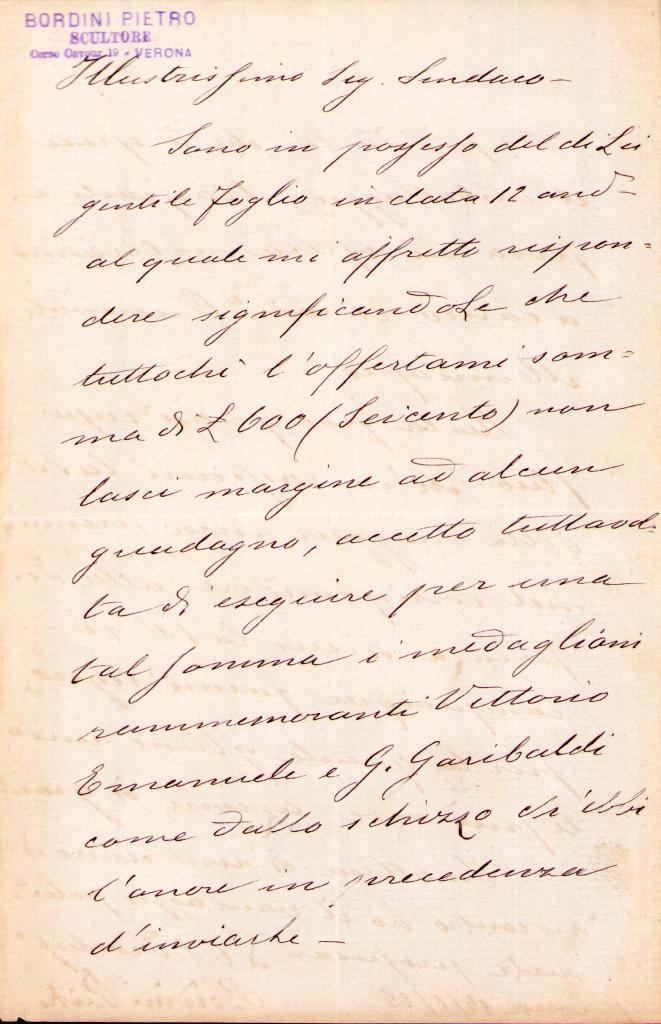 BORDINI PIETRO
SCULTORE
Corso Cavour 19 - VERONA
Illustrissimo Sig. Sindaco -
Sono in possesso del di Lei
gentile foglio in data 12 and-
al quale mi affretto rispon=
dere significandoLe che
tuttochè l'offertami som=
ma di £ 600 (Seicento) non
lasci margine ad alcun
guadagno, accetto tuttavol=
ta di eseguire per una
tal somma i medaglioni
rammemoranti Vittorio
Emanuele e G. Garibaldi
come dallo schizzo ch'ebbi
l'onore in precedenza
d'inviarle -